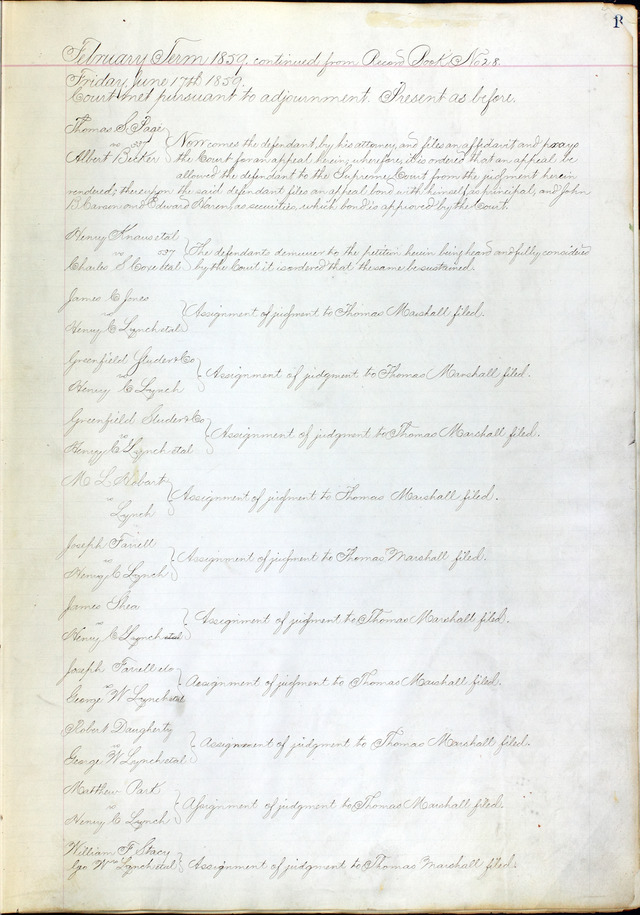 1
February Term 1859, continued from Record Book No 28.
Friday June 17th 1859
Court met pursuant to adjournment. Present as before.
Thomas S. Page
vs 537
Albert Becker
Now comes the defendant, by his attorney, and files an affidavit and prays
the Court for an appeal herein, wherefore, it is ordered that an appeal be
allowed the defendant to the Supreme Court from the judgment herein
rendered; thereupon the said defendant files an appeal bond with himself as principal, and John
B. Carson and Edward Haren, as securities, which bond is approved by the Court.
Henry Knaus etal
vs 537
Charles S Coxe etal
The defendants demurrer to the petition herein being heard and fully considered
by the Court it is ordered that the same be sustained.
James C Jones
vs
Henry C Lynch etal
Assignment of judgment to Thomas Marshall filed.
Greenfield Studer & Co
vs
Henry C Lynch
Assignment of judgment to Thomas Marshall filed.
Greenfield Studer & Co
vs
Henry C Lynch etal
Assignment of judgment to Thomas Marshall filed.
M L Hobart
vs
Lynch
Assignment of judgment to Thomas Marshall filed.
Joseph Farrell
vs
Henry C Lynch
Assignment of judgment to Thomas Marshall filed.
James Shea
vs
Henry C Lynch etal
Assignment of judgment to Thomas Marshall filed.
Joseph Farrell
vs
George W Lynch etal
Assignment of judgment to Thomas Marshall filed.
Robert Daugherty
vs
George W Lynch etal
Assignment of judgment to Thomas Marshall filed.
Matthew Park
vs
Henry C Lynch
Assignment of judgment to Thomas Marshall filed.
William F Stacy
vs
Geo W Lynch etal
Assignment of judgment to Thomas Marshall filed.